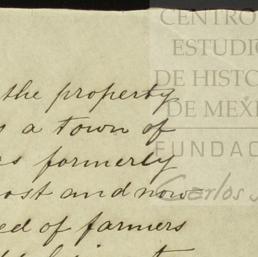 CENTRO
ESTUDIO
DE HISTO
DE MÉXI
FUNDAC
Carlos
the property
s a town of
as formerly
ost and now
ed of farmers